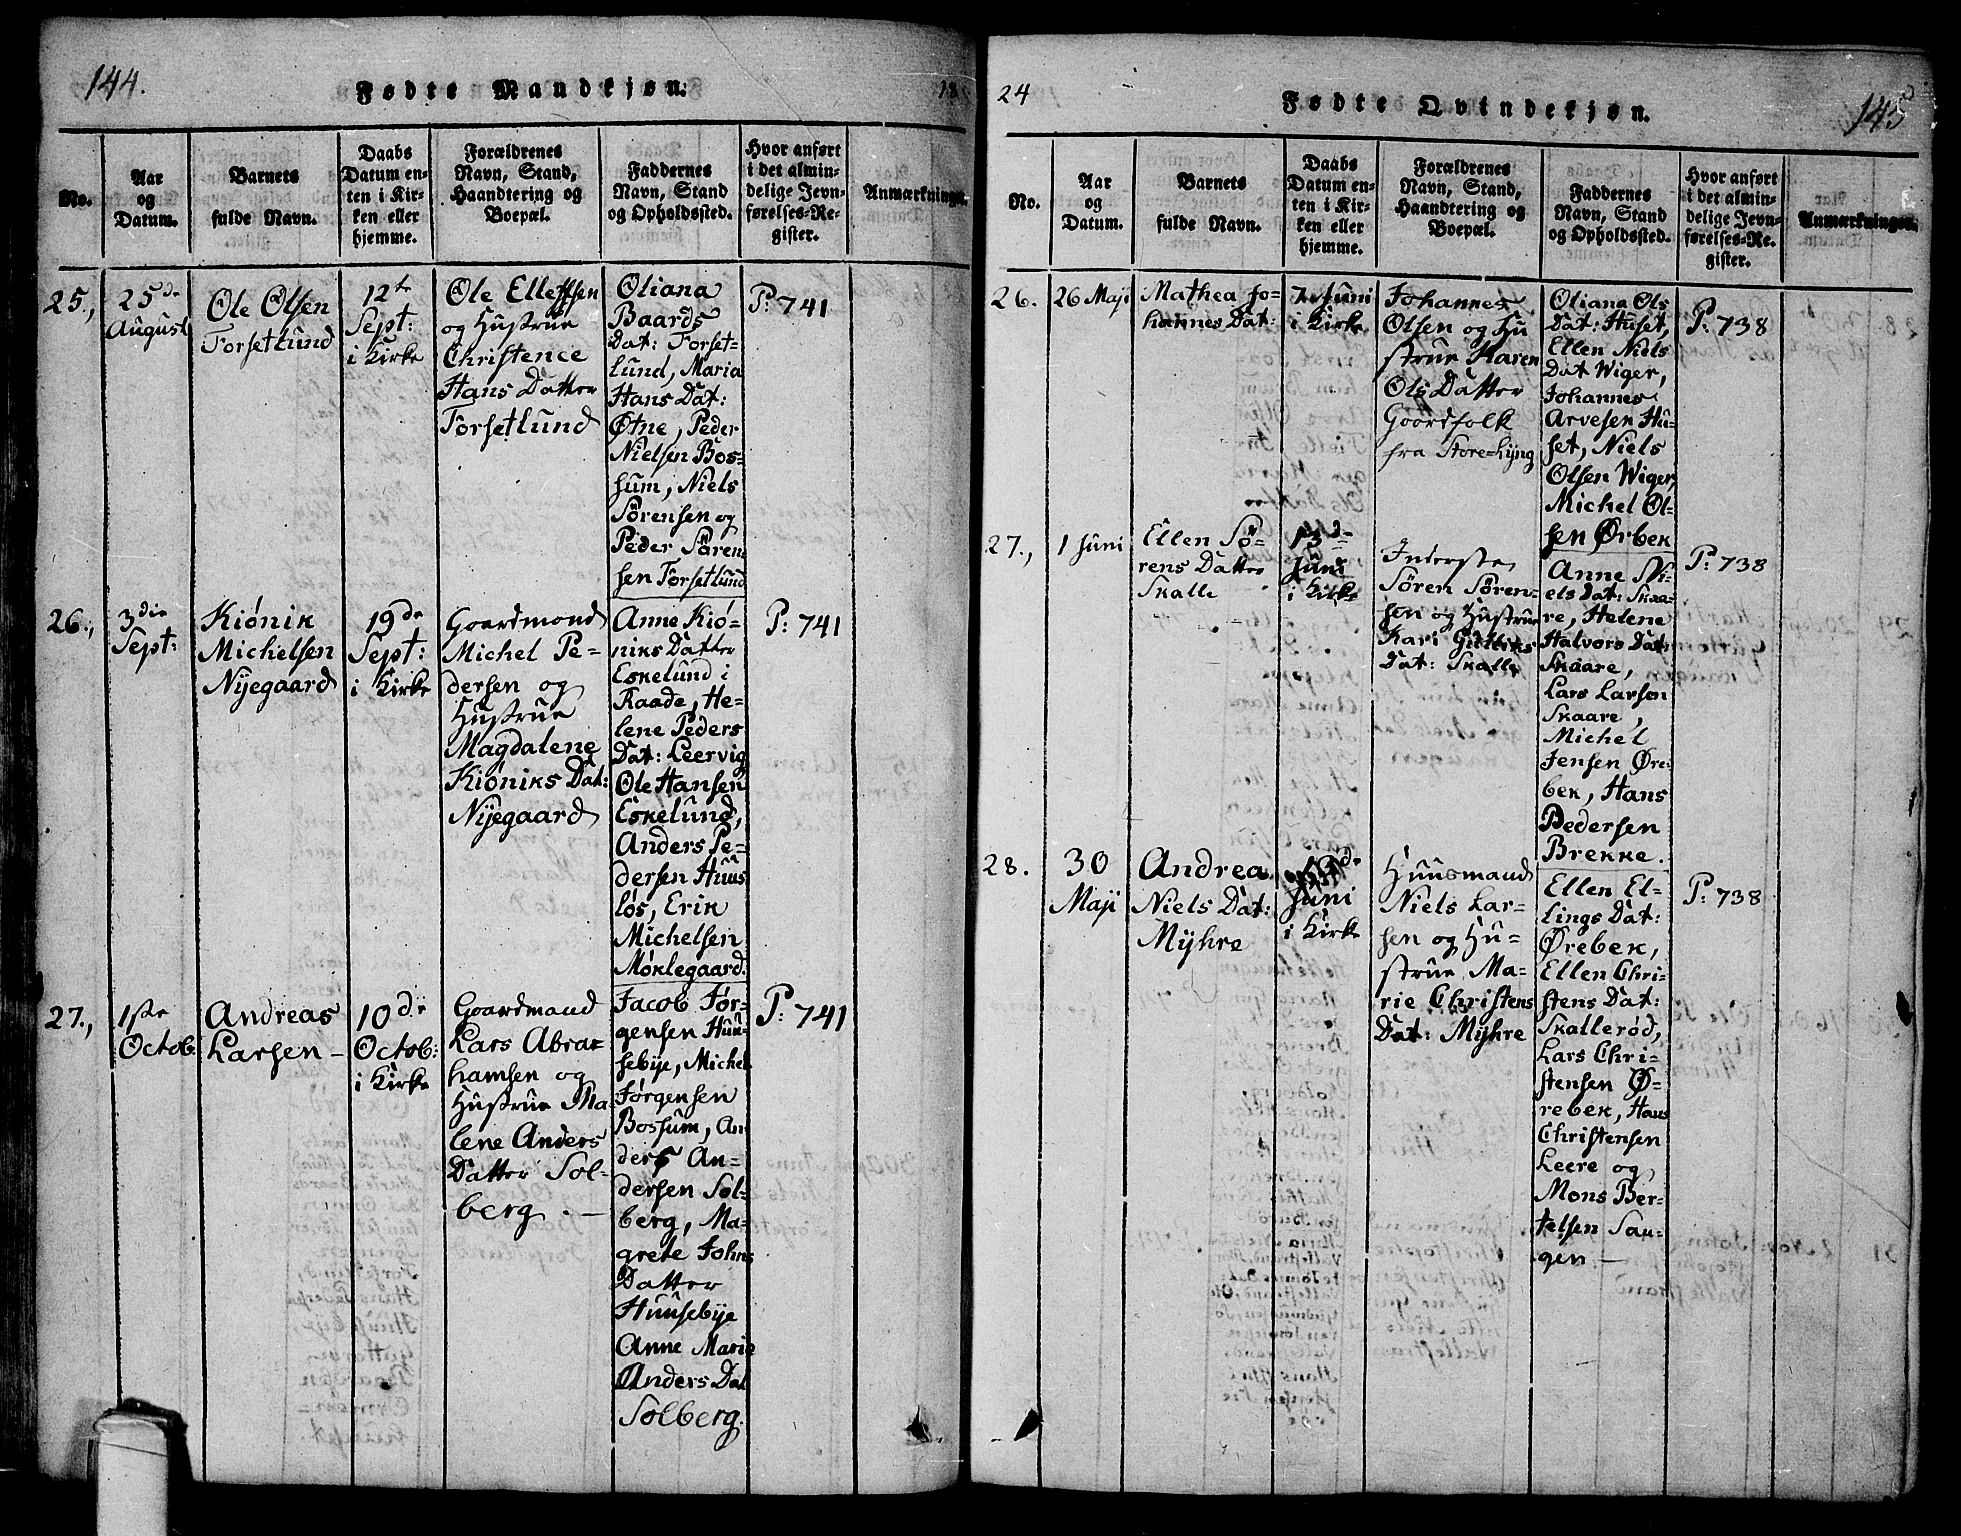 144.
Fødte Mandkjøn.
18
No.
Aar
og
Datum.
Barnets
fulde Navn.
Daabs
Datum en-
ten i Kir-
ken eller
hjemme.
Forældrenes
Navn, Stand,
Haandtering og
Boepæl.
Faddernes
Navn, Stand
og Opholdssted.
Hvor anført
i det almin-
delige Jevn-
førelses-Re-
gister.
Anmærkninger.
25.,
25de
August
Ole Olsen
Forsetlund
12te
Sept:
i Kirke
Ole Ellefsen
og Hustrue
Christence
Hans Datter
Forsetlund
Oliana
Baards
Dat: Forset-
lund, Maria
Hans Dat:
Øtne, Peder
Nielsen Bos-
sum, Niels
Sörensen og
Peder Sören
sen Forsetlund
P: 741
26.,
3die
Sept:
Kiönik
Michelsen
Nijegaard
19de
Sept:
i Kirke
Goardmand
Michel Pe-
dersen og
Hustrue
Magdalene
Kiöniks Dat:
Nijegaard
Anne Kiö-
niks Datter
Eskelund i
Raade, He-
lene Peders
Dat: Leervig
Ole Hansen
Eskelund,
Anders Pe-
dersen Huus
løs, Erik
Michelsen
Møklegaard.
P: 741
27.,
1ste
Octob.
Andreas
Larsen –
10de
Octob:
i Kirke
Goardmand
Lars Abra-
hamsen og
Hustrue Ma-
lene Anders
Datter Sol-
berg. –
Jacob Jør-
gensen Huu-
sebÿe, Michel
Jørgensen
Bossum, An
ders An-
dersen Sol-
berg, Ma-
grete Johns
Datter
Huusebÿe
Anne Marie
Anders Dat
Solberg.
P: 741
24
Fødte Qvindekjøn.
145
No.
Aar
og
Datum.
Barnets
fulde Navn.
Daabs
Datum en-
ten i Kir-
ken eller
hjemme.
Forældrenes
Navn, Stand,
Haandtering og
Boepæl.
Faddernes
Navn, Stand
og Opholdssted.
Hvor anført
i det almin-
delige Jevn-
førelses-Re-
gister.
Anmærkninger.
26.
26 Maji
Mathea Jo-
hannes Dat:
7 Juni
i Kirke
Johannes
Olsen og Hu
strue Karen
Ols Datter
Goardfolk
fra Store-Lÿng
Oliana Ols
Dat: Huset,
Ellen Niels
Dat Wiger,
Johannes
Arvesen Hu-
set, Niels
Olsen Wiger
Michel Ol-
sen Ørbek
P: 738
27.,
1 Juni
Ellen Sö-
rens Datter
Skalle
13de
Juni
i Kirke
Inderste
Sören Sören-
sen og Hustrue
Kari Gulliks
Dat: Skalle
Anne Ni-
els Dat: Skaa-
re, Helene
Halvors Dat:
Skaare,
Lars Larsen
Skaare,
Michel
Jensen Øre-
bek, Hans
Pedersen
Brekke.
P: 738
28.
30
Maji
Andrea
Niels Dat:
Mÿhre
Juni
i Kirke
Huusmand
Niels Lar-
sen og Hu-
strue Ma-
rie Christens
Dat: Mÿhre
Ellen El-
lings Dat:
Ørebek,
Ellen Chri-
stens Dat:
Skallerød,
Lars Chri-
stensen Ø-
rebek, Hans
Christensen
Leere og
Mons Ber-
telsen Sau-
gen –
P: 738